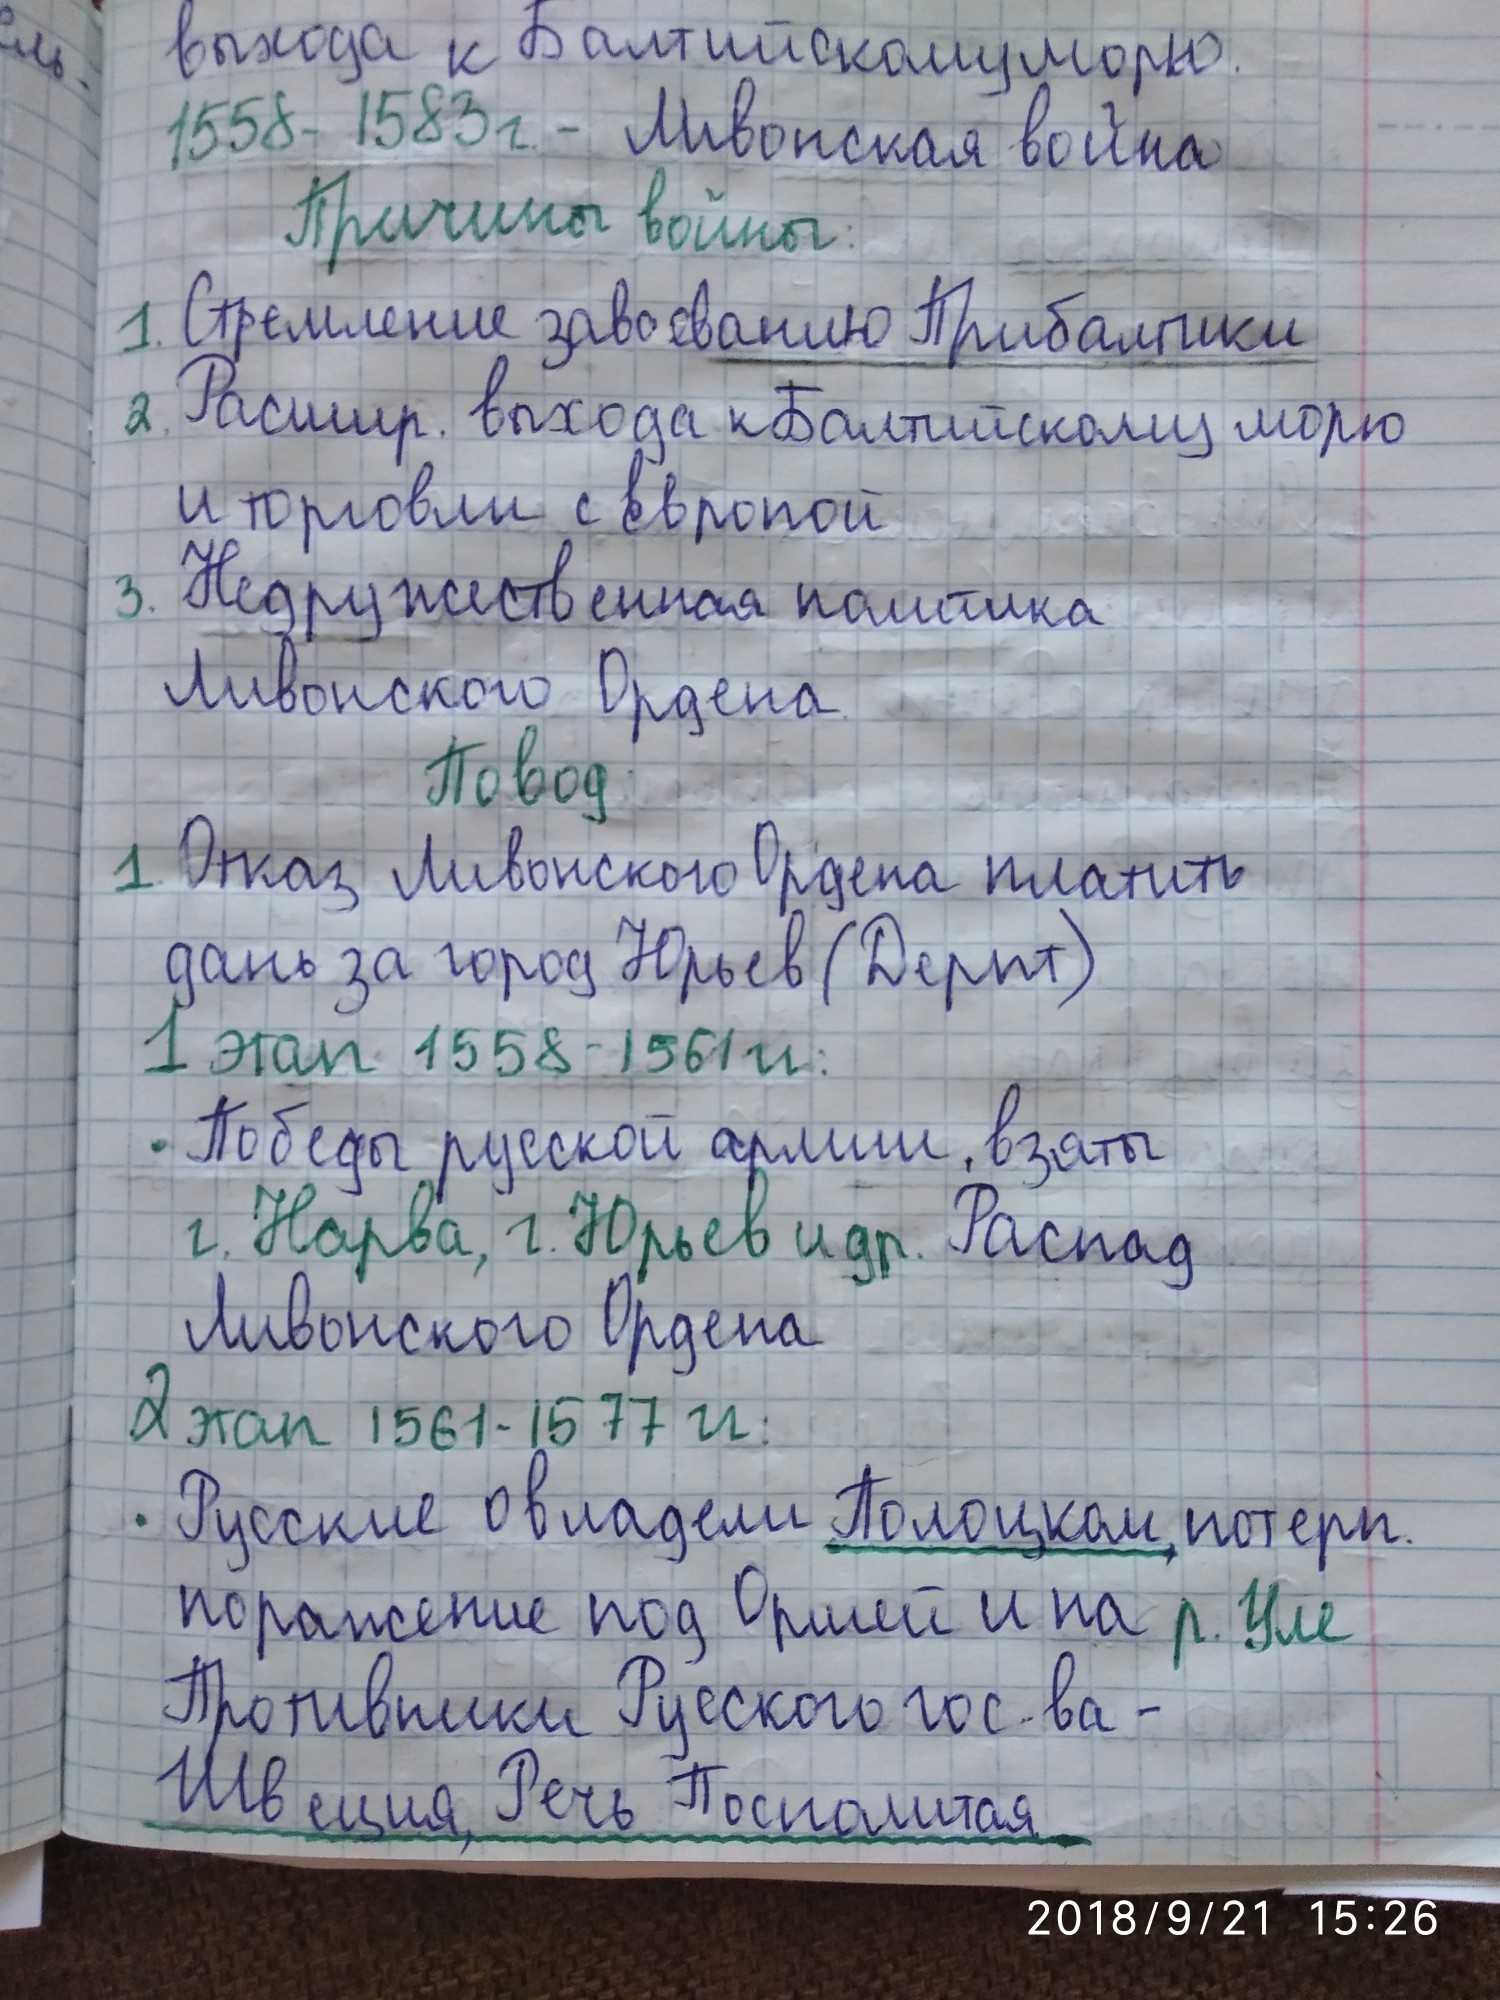 ель.
выхода к Балтийскому морю.
1558- 1583г. - Ливонская война
Причины войны:
1. Стремление завоеванию Прибалтики
2. Расшир. выхода к Балтийскому морю
и торговли с Европой
3. Недружественная политика
Ливонского Ордена
Повод:
1. Отказ Ливонского Ордена платить
дань за город Юрьев (Дерпт)
1 этап 1558-1561 гг:
• Победы русской армии, взяты
г. Нарва, г. Юрьев и др. Распад
Ливонского Ордена
2 этап 1561-1577 гг:
• Русские овладели Полоцком, потерп.
поражение под Оршей и на р. Уле
Противники Русского гос-ва -
Швеция, Речь Посполитая
2018/9/21 15:26